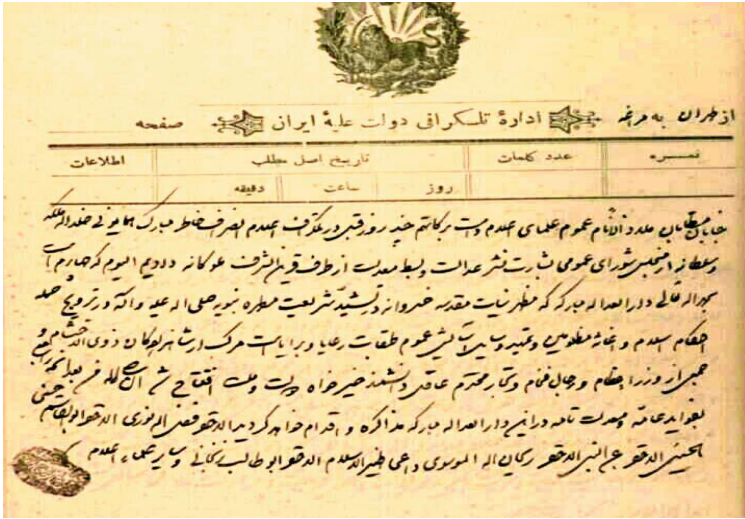 از طهران به مراغه اداره تلگرافی دولت علیه ایران صفحه
نمره عدد کلمات تاریخ اصل مطلب اطلاعات
روز ساعت دقیقه
عموم علمای اعلام دامت برکاتهم چند روز قبل در تلگراف اعلام انصراف خاطر مبارک همایونی خلد الله ملکه
و سلطانه از مجلس شورای عمومی بشارت نشر عدالت و بسط معدلت از طرف قرین الشرف ملوکانه دادیم الیوم که چهارم است
بحمد الله تعالی دار العداله مبارکه که مظهر نیات مقدسه خسروانه و تشیید شریعت مطهره نبوی صلی الله علیه و آله و ترویج
احکام اسلام و اغاثه مظلومین و تمهید وسایل آسایش عموم طبقات رعایا و برایا است مرکب از شاهزادگان ذوی الاحتشام و
جمعی از وزراء عظام و رجال فخام و تجار محترم عاقل دانشمند خیرخواه دولت و ملت افتتاح شد ان شاء الله من بعد
بفواید عامه و معدلت تامه در این دار العداله مبارکه مذاکره و اقدام خواهد کردید الاحقر فضل الله نوری الاحقر ابوالقاسم
الحسینی الاحقر علی اکبر الاحقر ریحان الله الموسوی داعی ظهیر الاسلام الاحقر ابوطالب زنجانی و سایر علماء اعلام